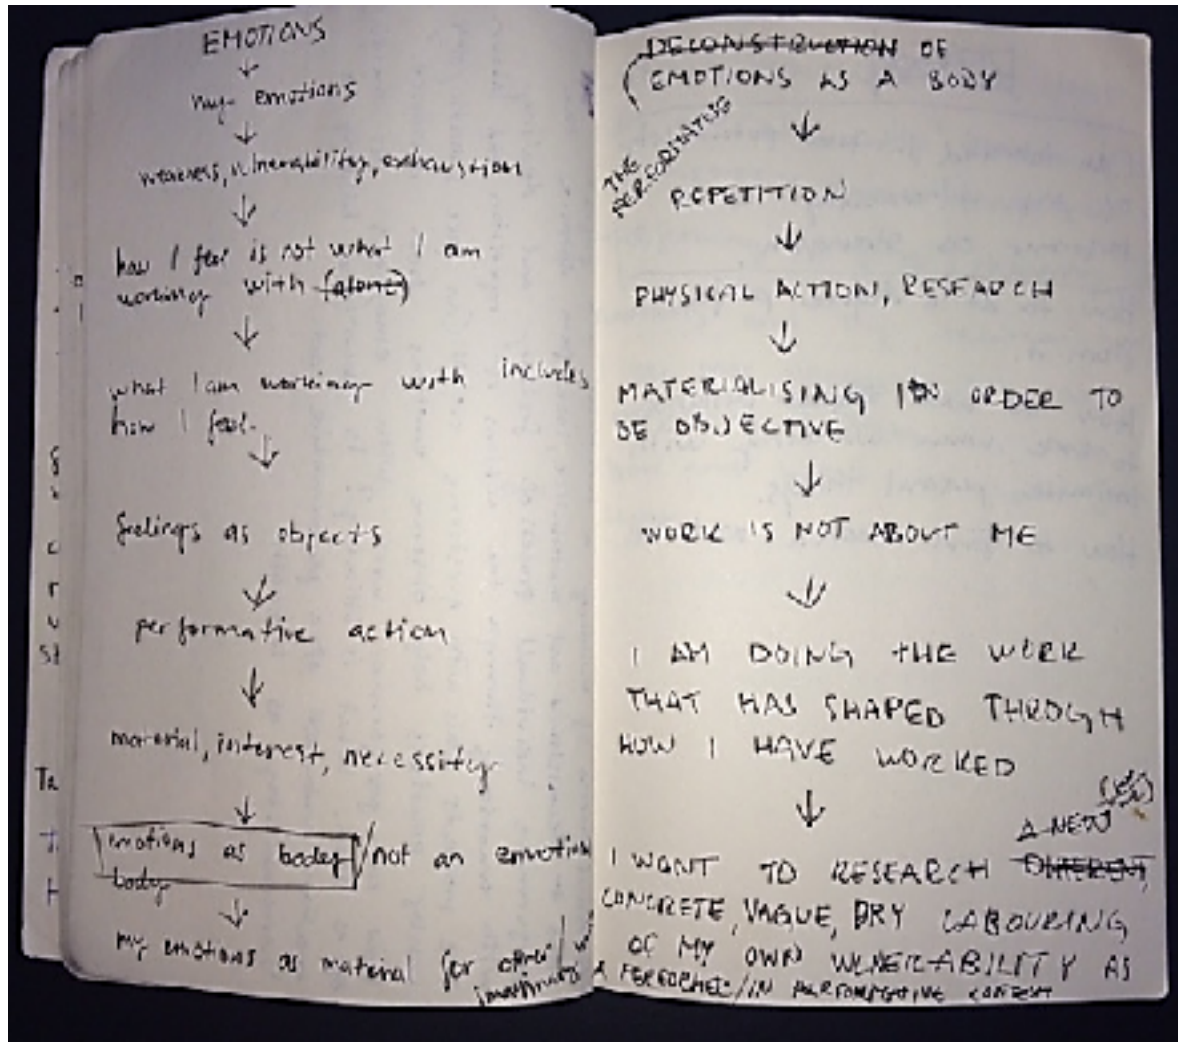 EMOTIONS
↓
my emotions
↓
weakness, vulnerability, exhaustion
↓
how I feel is not what I am
working with (alone)
↓
what I am working with includes
how I feel.
↓
feelings as objects
↓
performative action
↓
material, interest, necessity
↓
emotions as body / not an emotional
body
↓
my emotions as material for other
DECONSTRUCTION OF
EMOTIONS AS A BODY
THE
PERFORMATING
↓
REPETITION
↓
PHYSICAL ACTION, RESEARCH
↓
MATERIALISING IN ORDER TO
BE OBJECTIVE
↓
WORK IS NOT ABOUT ME
↓
I AM DOING THE WORK
THAT HAS SHAPED THROUGH
HOW I HAVE WORKED
↓
A NEW
I WANT TO RESEARCH DIFFERENT,
CONCRETE, VAGUE, DRY LABOURING
OF MY OWN VULNERABILITY AS
A PERFORMER/IN PERFORMATIVE CONTEXT